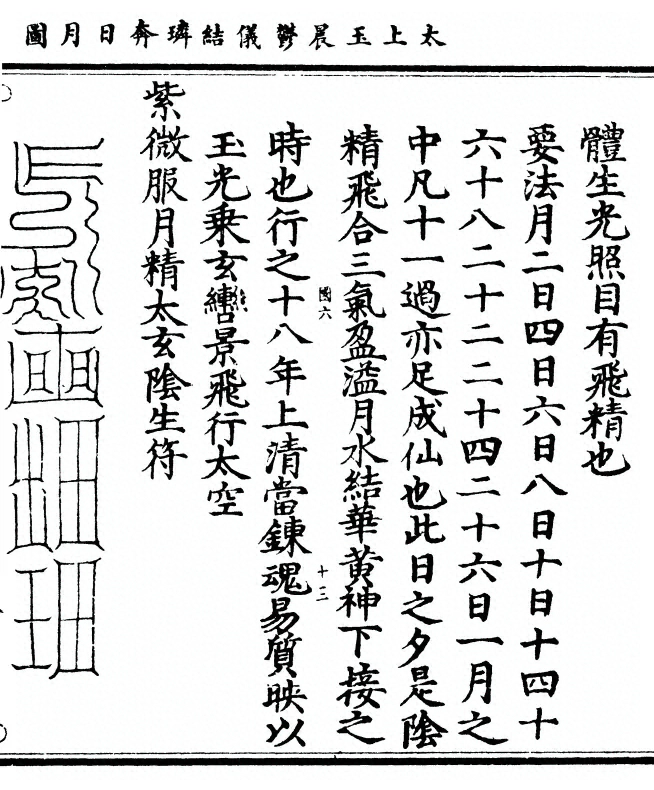 太上玉晨鬱儀結璘奔日月圖
體生光照目有飛精也
要法月二日四日六日八日十日十四十
六十八二十二二十四二十六日一月之
中凡十一過亦足成仙也此日之夕是陰
精飛合三氣盈溢月水結華黃神下接之
國六
十三
時也行之十八年上清當鍊魂易質映以
玉光乗玄轡景飛行太空
紫微服月精太玄陰生符